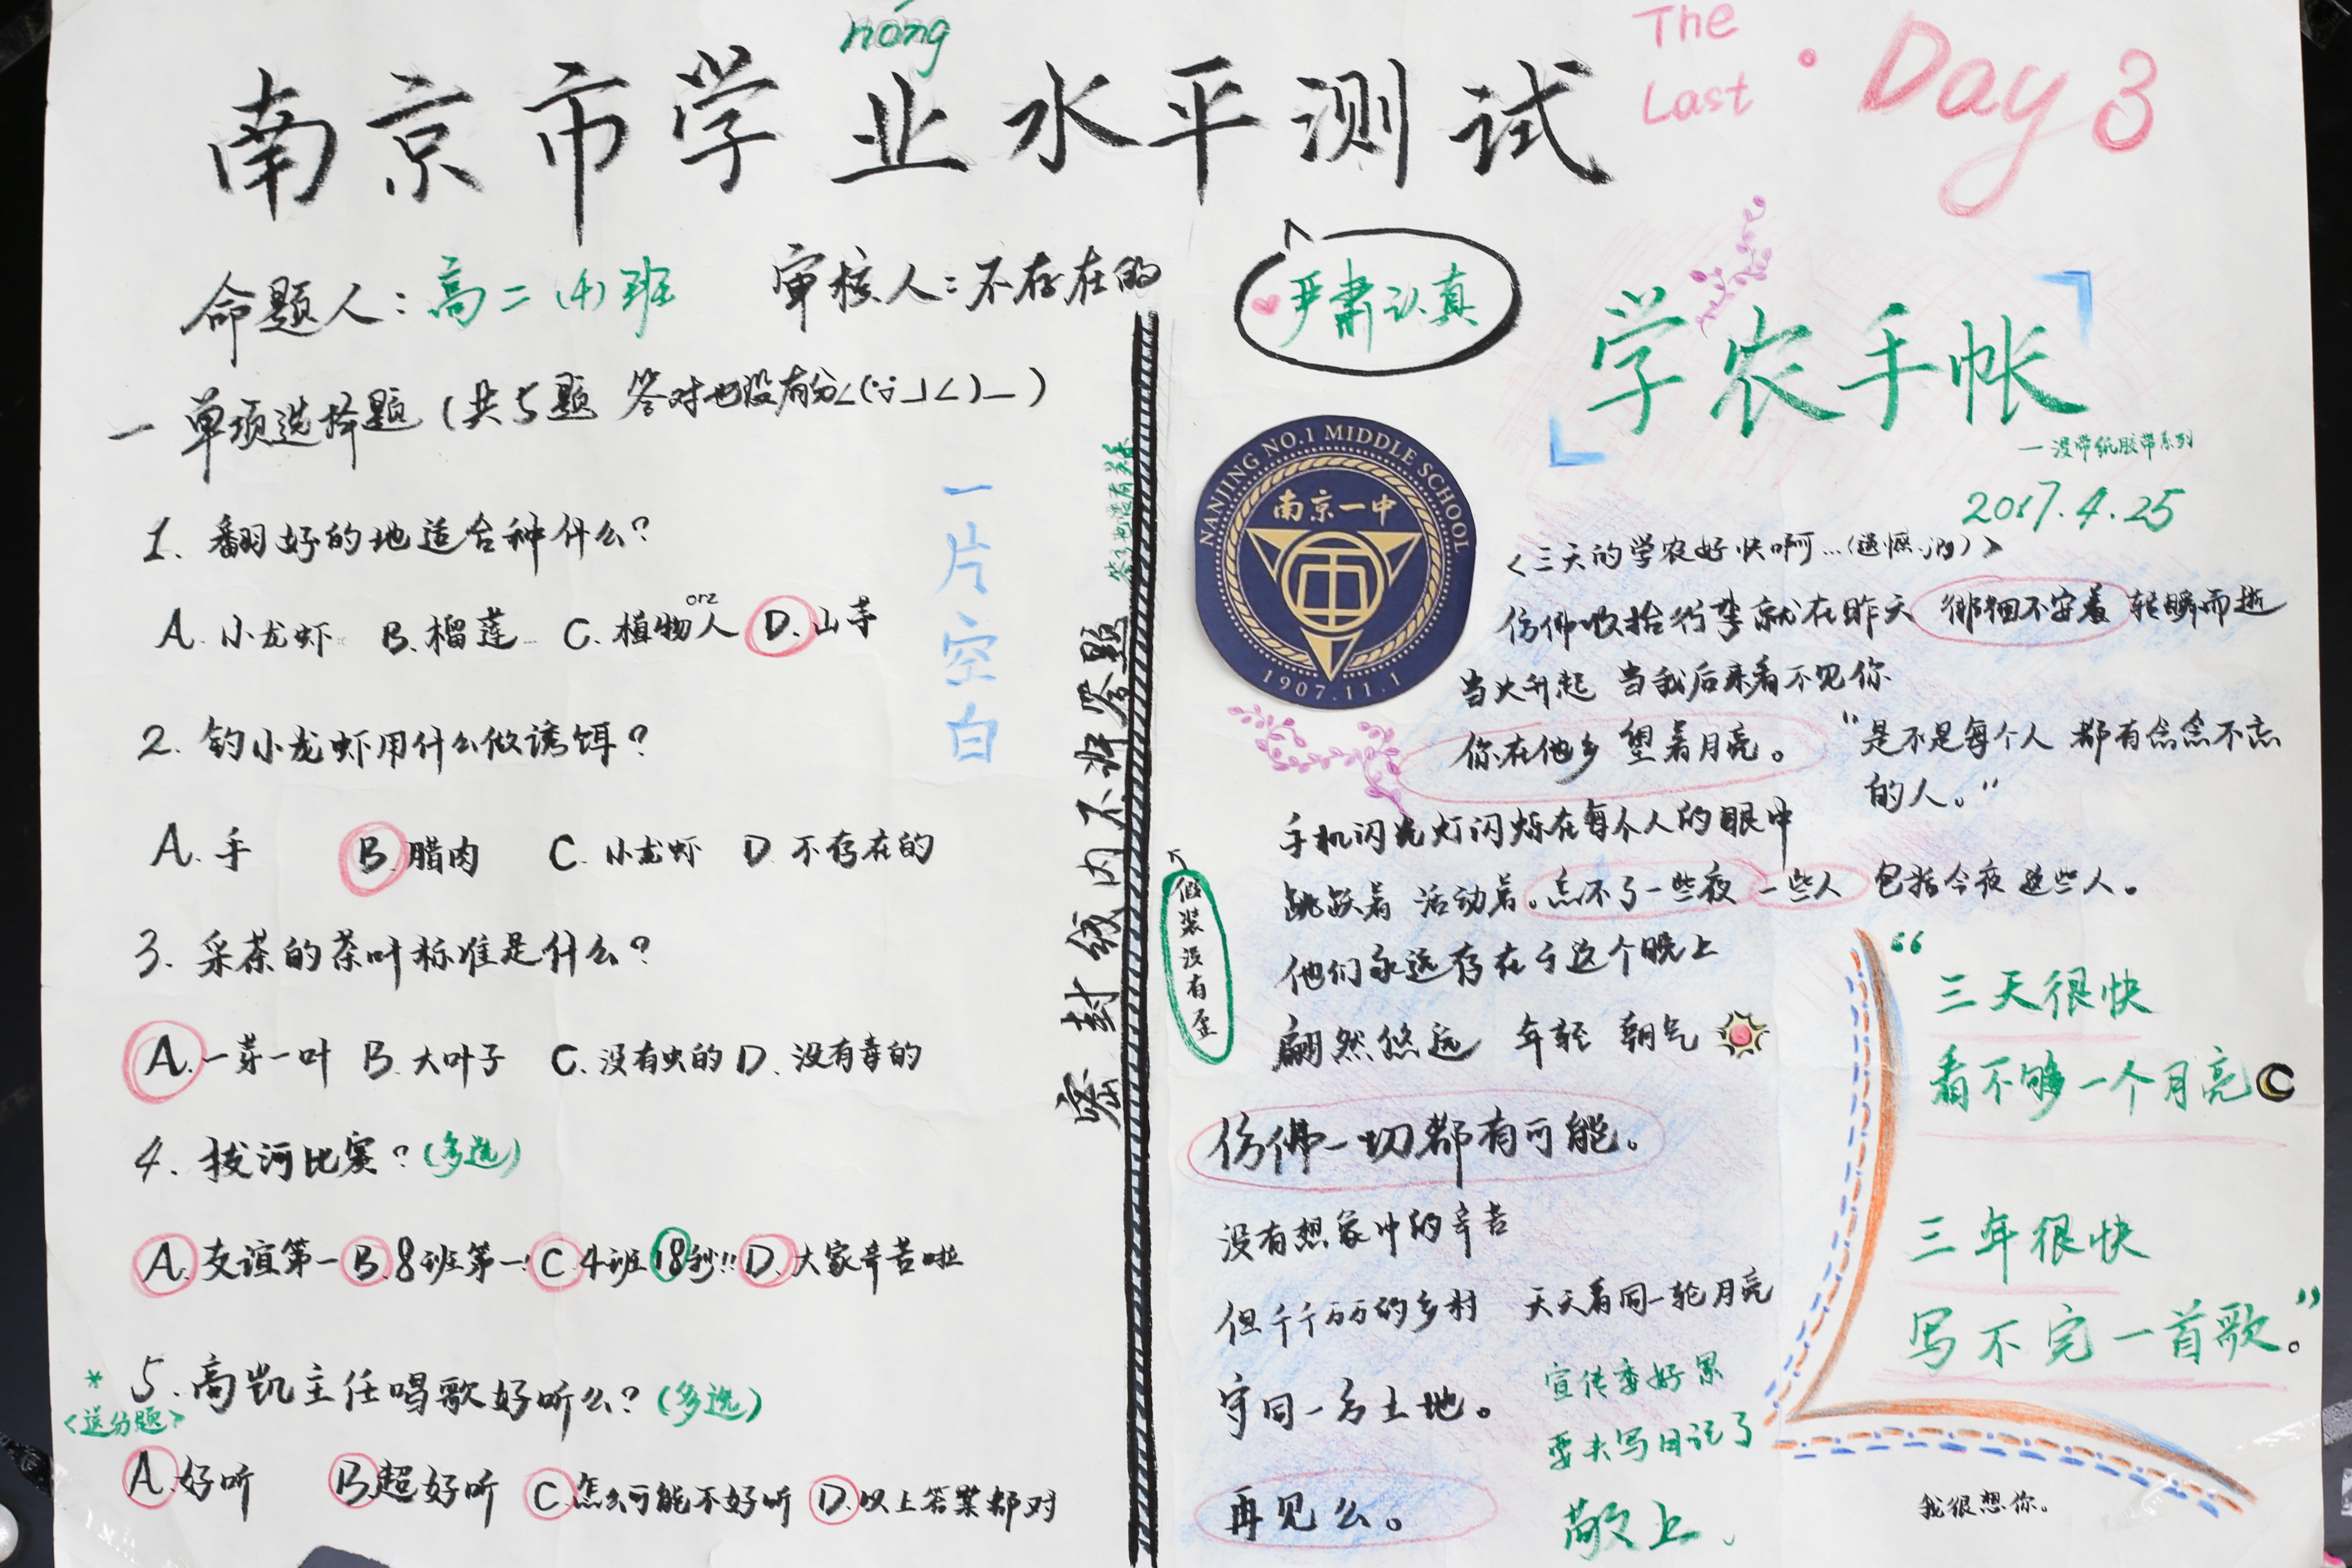 nóng
南京市学业水平测试
The Last · Day 3
命题人：高二(4)班 审核人：不存在的
严肃认真
一 单项选择题（共5题 答对也没有分
1. 翻好的地适合种什么？
A. 小龙虾 B. 榴莲 C. 植物人 D. 山芋
orz
2. 钓小龙虾用什么做诱饵？
A. 手 B. 腊肉 C. 小龙虾 D. 不存在的
3. 采茶的茶叶标准是什么？
A. 一芽一叶 B. 大叶子 C. 没有虫的 D. 没有毒的
4. 拔河比赛？(多选)
A. 友谊第一 B. 8班第一! C. 4班18秒!! D. 大家辛苦啦
* 5. 高凯主任唱歌好听么？(多选)
<送分题>
A. 好听 B. 超好听 C. 怎么可能不好听 D. 以上答案都对
一片空白
密封线内不准答题
答了也没有关系
假装没有歪
学农手帐
—没带纸胶带系列
2017.4.25
NANJING NO.1 MIDDLE SCHOOL
南京一中
1907.11.1
<三天的学农好快啊...(遗憾.jpg)>
仿佛收拾行李就在昨天 徘徊不安着 转瞬而逝
当火升起 当我后来看不见你
你在他乡 望着月亮。
“是不是每个人 都有念念不忘
的人。”
手机闪光灯闪烁在每个人的眼中
跳跃着 活动着。忘不了一些夜 一些人 包括今夜 这些人。
他们永远存在于这个晚上
翩然悠远 年轻 朝气
仿佛一切都有可能。
没有想象中的辛苦
但千千万万的乡村 天天看同一轮月亮
守同一方土地。
再见么。
“三天很快
看不够一个月亮
三年很快
写不完一首歌。”
宣传委好累
要去写日记了
敬上.
我很想你。